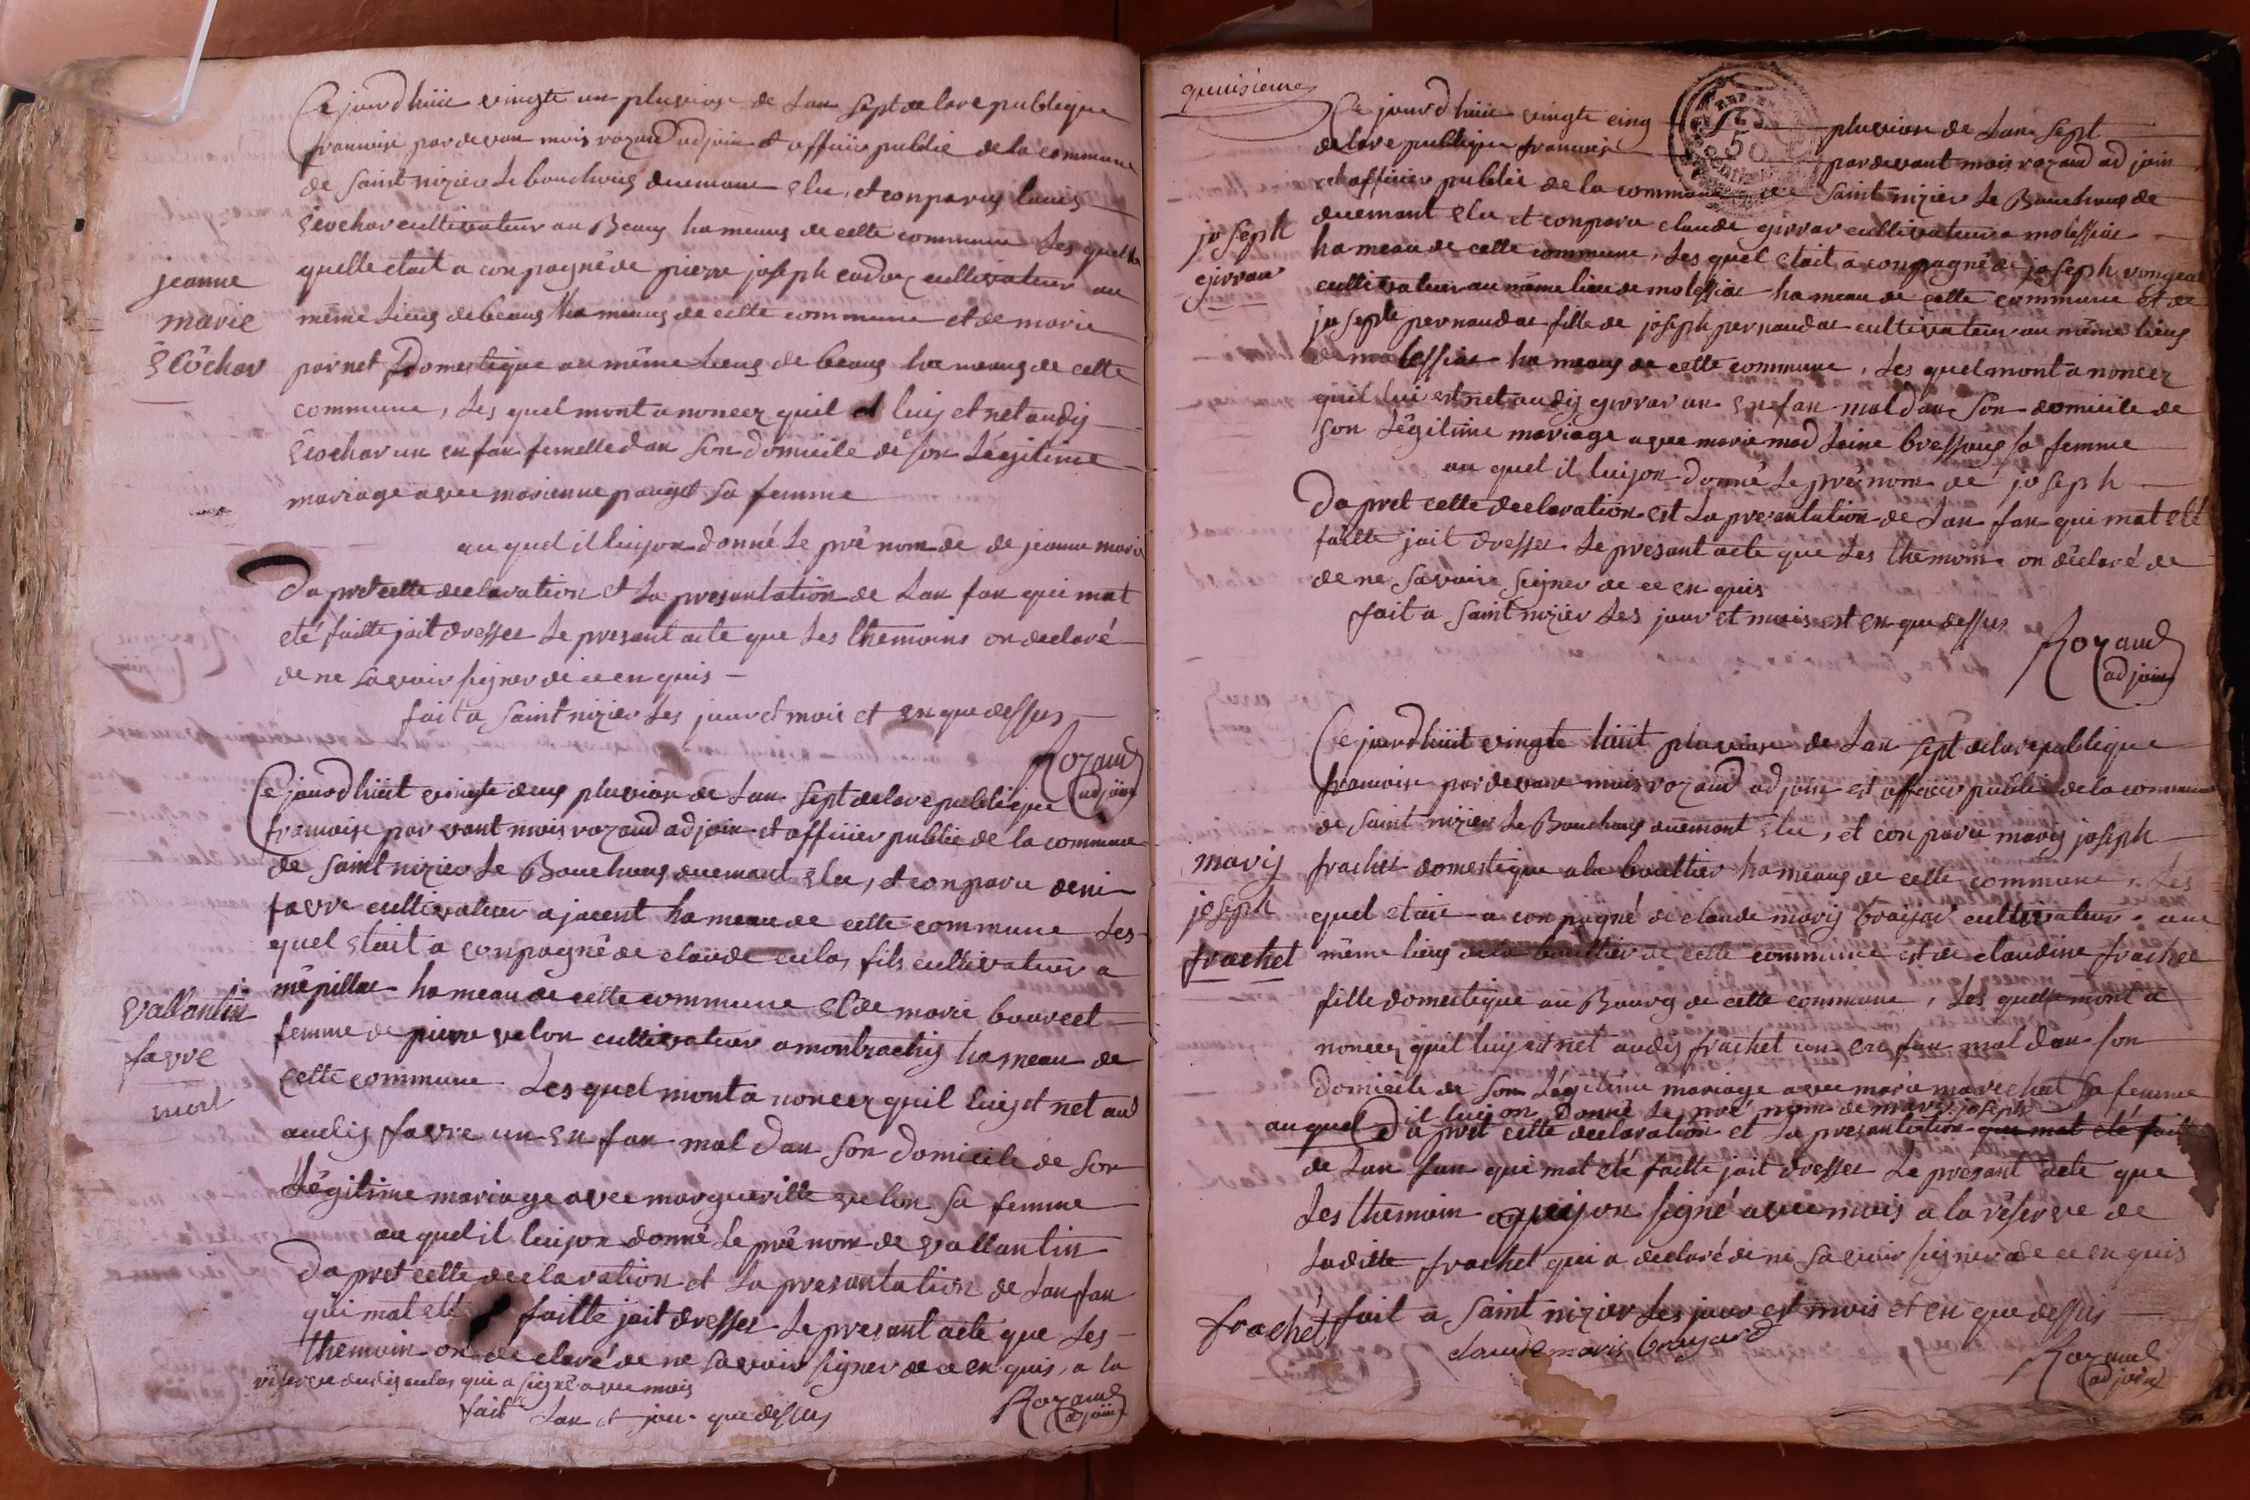 Ce jourd huie vingte un pluviose de Lan Sept de lare publique
francoise par devan mois rozand adjoin et officiie publie de la commune
de Saint nizier Le bouchoug duemant elu, et conparug louis
cultivateur au Beaug hameaug de cette commune Les quel
quelle etait a conpagné de pierre joseph cultivateur au
jeanne
marie
même Lieug de beaug hameaug de cette commune et de marie
domestique au même Lieug de beaug hameaug de cette
commune, Les quel mont a noncer quil et luij et net audij
un en fan femelle dan Son domicile de Son Légitime
mariage avec marienne Sa femme
au quel il luij on donné Le pré nom de de jeanne marie
Da pret cette declaration et La presantation de Lan fan qui mat
eté faitte jait dresser Le presant acte que Les themoins on declaré
de ne Savoir Signer de ce en quis
fait a Saint nizier Les jour et mois et en que dessus
Rozand
adjoin
Ce jourd huit vingte deug pluviose de Lan Sept de lare publique
francoise par vant mois rozand adjoin et officiier publie de la commune
de Saint nizier Le Bouchoug duemant elu, et conparu deni
favre cultivateur a jacent hameau de cette commune Les
quel etait a conpagné de claude culas fils cultivateur a
mépillat hameau de cette commune et de marie bourcet
vallantin
favre
mort
femme de pierre velon cultivateur a montrachij hameau de
cette commune Les quel mont a noncer quil luij et net aud
audij favre un en fan mal dan Son domicile de Son
Légitime mariage avec margueritte velon Sa femme
au quel il luij on donné Le pré nom de vallantin
Da pret cette declaration et La presantation de Lan fan
qui mat eté faitte jait dresser Le presant acte que Les
themoin on de claré de ne Savoir Signer de ce en quis, a la
réserve dudij culas qui a Signé avec mois
fait Lan et jour que dessus
Rozand
adjoin
Ce jourd huie vingte cinq pluviose de Lan Sept
de lare publique francoise par devant mois rozand adjoin
et officiier publie de la commune de Saint nizier Le Bouchoug de
duemant elu et conparu claude girrar cultivateur a molissiat
joseph
girrar
hameau de cette commune, Les quel etait a conpagné de joseph
cultivateur au même lieu de molissiat hameau de cette commune et de
joseph pernaudat fille de joseph pernaudat cultivateur au même lieug
de molissiat hameaug de cette commune, Les quel mont a noncer
quil lui est net audij girrar un en fan mal dan Son domicile de
Son Légitime mariage avec marie mad Laine bressoug Sa femme
au quel il luij on donné Le pré nom de joseph
Da pret cette declaration est La presantation de Lan fan qui mat eté
faitte jait dresser Le presant acte que Les themoin on déclaré de
de ne Savoir Signer de ce en quis
fait a Saint nizier Les jour et mois est en que dessus
Rozand
adjoin
Ce jourd huit vingte huit pluviose de Lan Sept de lare publique
francoise par devant mois rozand adjoin est officiier publie de la commune
de Saint nizier Le Bouchoug duemant elu, et conparu marij joseph
marij
joseph
frachet
frachet domestique a la boultier hameaug de cette commune, Les
quel etait a conpagné de claude marij brayar cultivateur au
même lieug de la boultier de cette commune est de claudine frachet
fille domestique au Bourg de cette commune, Les quel mont a
noncer quil luij est net audij frachet un en fan mal dan Son
domicile de Son Légitime mariage avec marie marechal Sa femme
au quel il luij on donné Le pré nom de marij joseph
Da pret cette declaration et La presantation qui mat eté fait
de Lan fan qui mat eté faitte jait dresser Le presant acte que
Les themoin on Signé avec mois a la réserve de
Laditte frachet qui a déclaré de ne Savoir Signer de ce en quis
fait a Saint nizier Les jour est mois et en que dessus
frachet
claude maris brayard
Rozand
adjoin